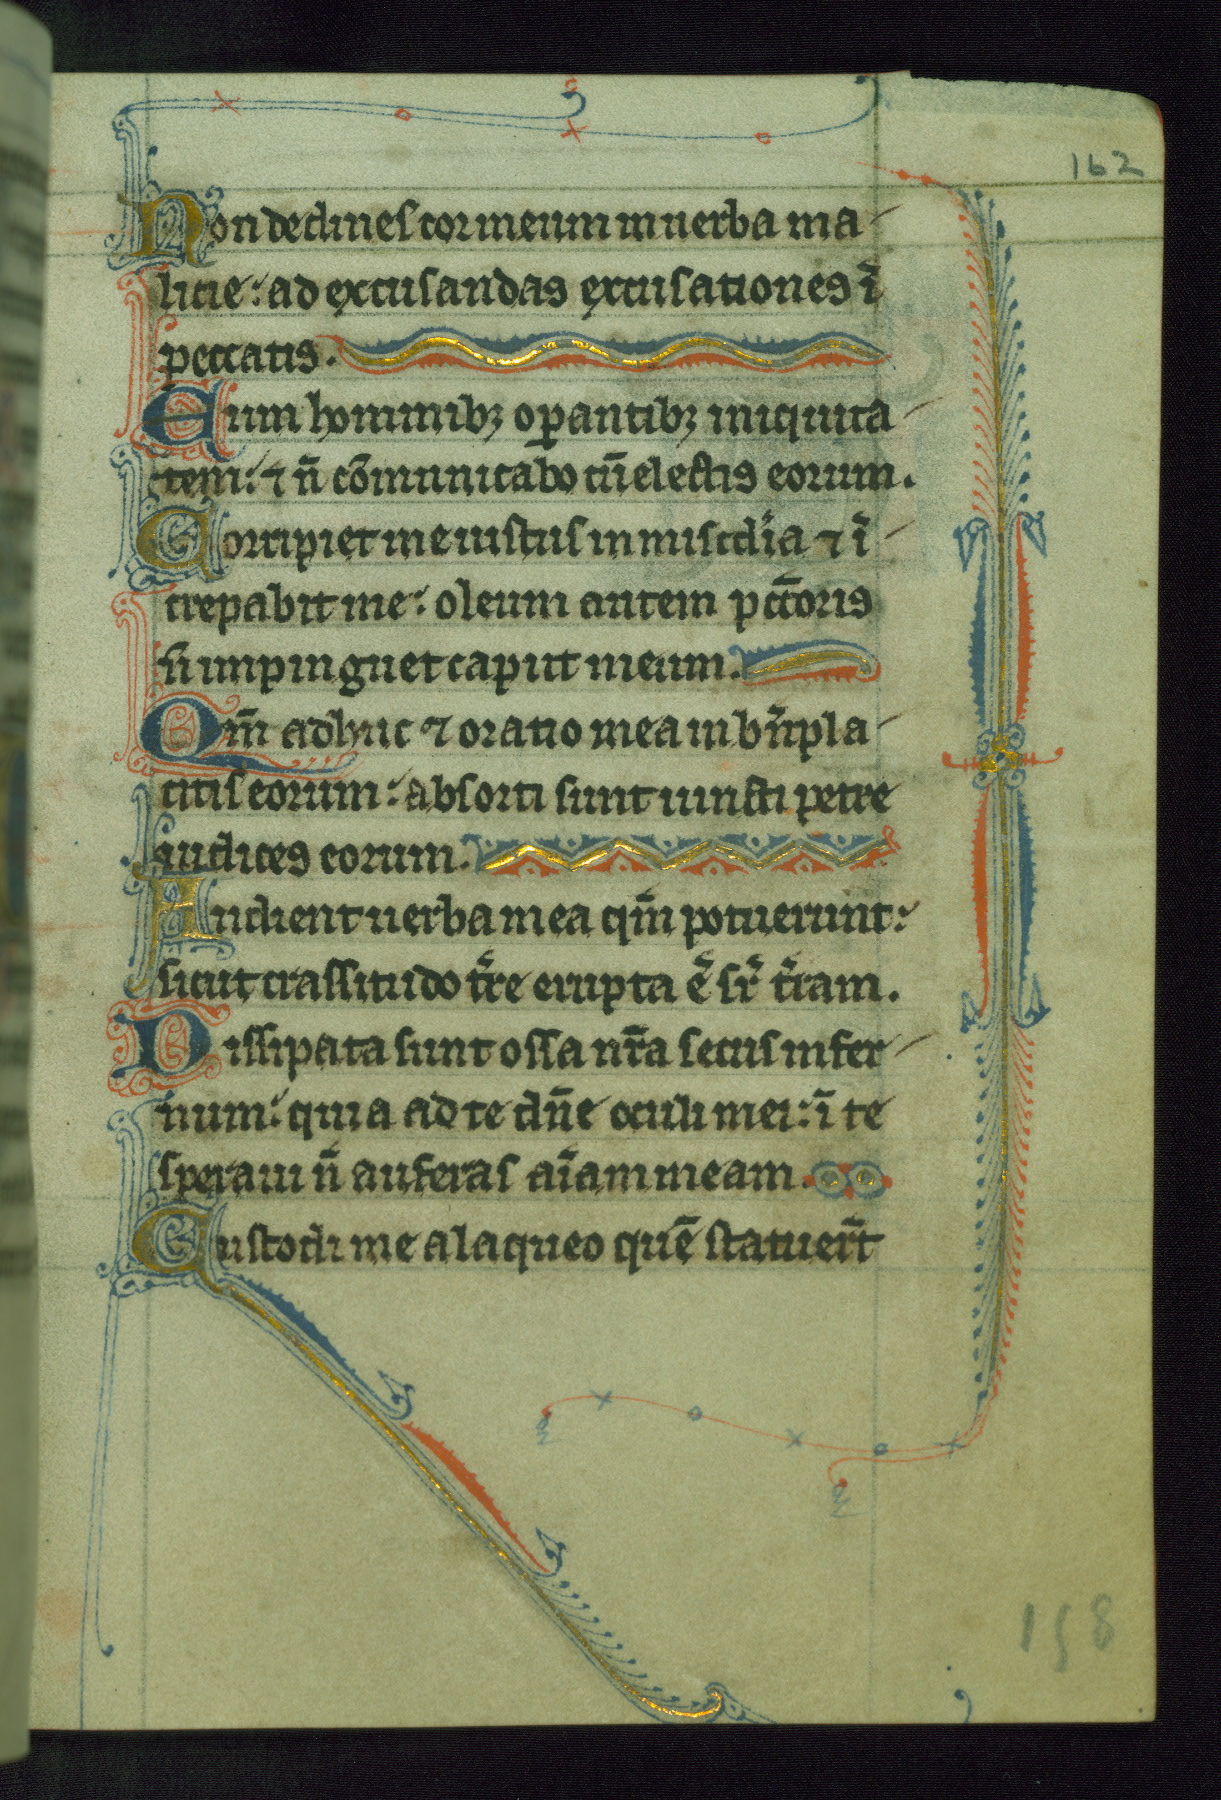 162
Non declines cor meum in uerba ma
licie: ad excusandas excusationes ī
peccatis.
Cum hominibꝫ oꝑantibꝫ iniquita
tem: ⁊ ñ cōmunicabo cū electis eorum.
Corripiet me iustus in miscd̓ia ⁊ ī
crepabit me: oleum autem pc̄toris
ñ inpinguet caput meum.
Qm̄ adhuc ⁊ oratio mea in bn̄pla
citis eorum: absorti sunt iuncti petre
iudices eorum.
Audient uerba mea qm̄ potuerunt:
sicut crassitudo t̄re erupta ē sr̄ t̄ram.
Dissipata sunt ossa nr̄a secus infer
num: quia ad te dn̄e oculi mei: ī te
speraui ñ auferas aīam meam.
Custodi me a laqueo quē statuer̄t
158